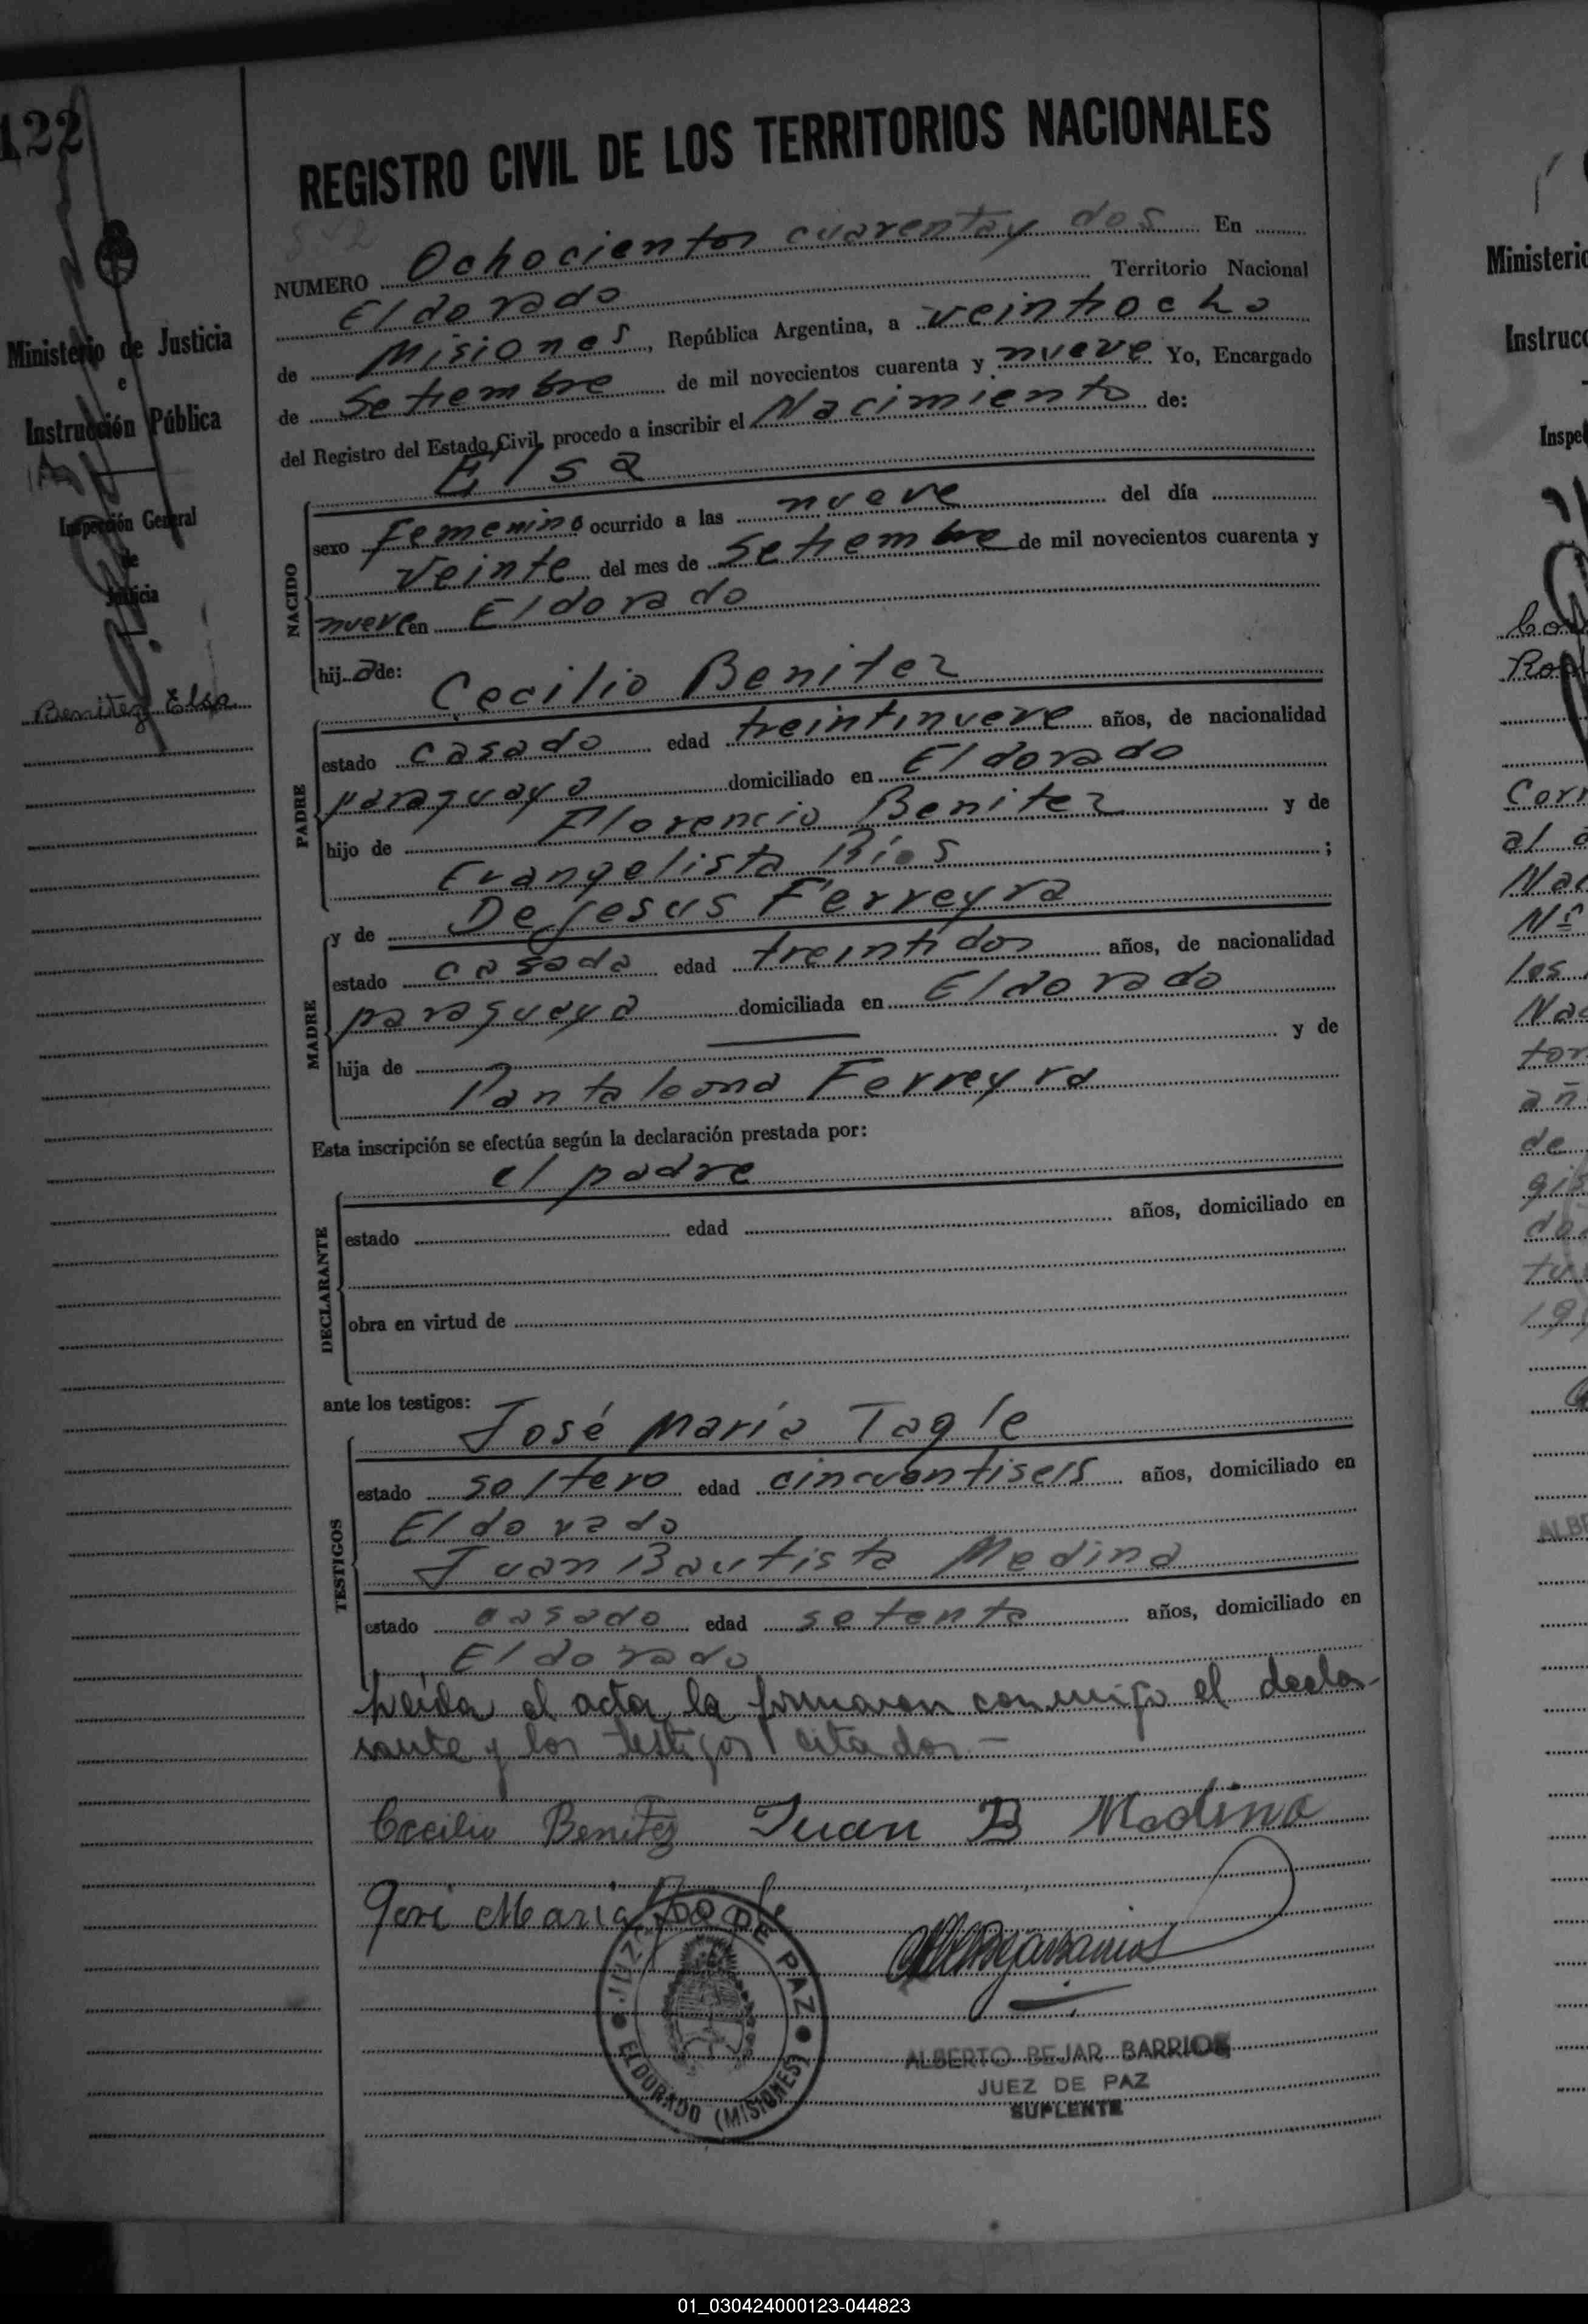 122
Ministerio de Justicia
e
Instrucción Pública
Inspección General
de
Justicia
Benitez Elsa
REGISTRO CIVIL DE LOS TERRITORIOS NACIONALES
842
NUMERO Ochocientos cuarenta y dos En
Eldorado Territorio Nacional
de Misiones, República Argentina, a veintiocho
de Setiembre de mil novecientos cuarenta y nueve Yo, Encargado
del Registro del Estado Civil, procedo a inscribir el Nacimiento de:
Elsa
NACIDO
sexo femenino ocurrido a las nueve del día
Veinte del mes de Setiembre de mil novecientos cuarenta y
nueve en Eldorado
hija de: Cecilio Benitez
PADRE
estado casado edad treintinueve años, de nacionalidad
paraguayo domiciliado en Eldorado
hijo de Florencio Benitez y de
Evangelista Ríos ;
y de De Jesus Ferreyra
MADRE
estado casada edad treintidos años, de nacionalidad
paraguaya domiciliada en Eldorado
hija de — y de
Pantaleona Ferreyra
Esta inscripción se efectúa según la declaración prestada por:
el padre
DECLARANTE
estado edad años, domiciliado en
obra en virtud de
ante los testigos:
José María Tagle
TESTIGOS
estado soltero edad cincuentiseis años, domiciliado en
Eldorado
Juan Bautista Medina
estado casado edad setenta años, domiciliado en
Eldorado
Leída el acta, la firmaron conmigo el decla-
rante y los testigos citados.—
Cecilio Benitez Juan B Medina
José Maria Tagle
JUZGADO DE PAZ
ELDORADO (MISIONES)
ALBERTO BEJAR BARRIOS
JUEZ DE PAZ
SUPLENTE
Ministerio
Instrucc
Inspe
Corr
al
Nac
Nº
los
Nac
tor
añ
de
gis
da
tu
19
ALBE
01_030424000123-044823